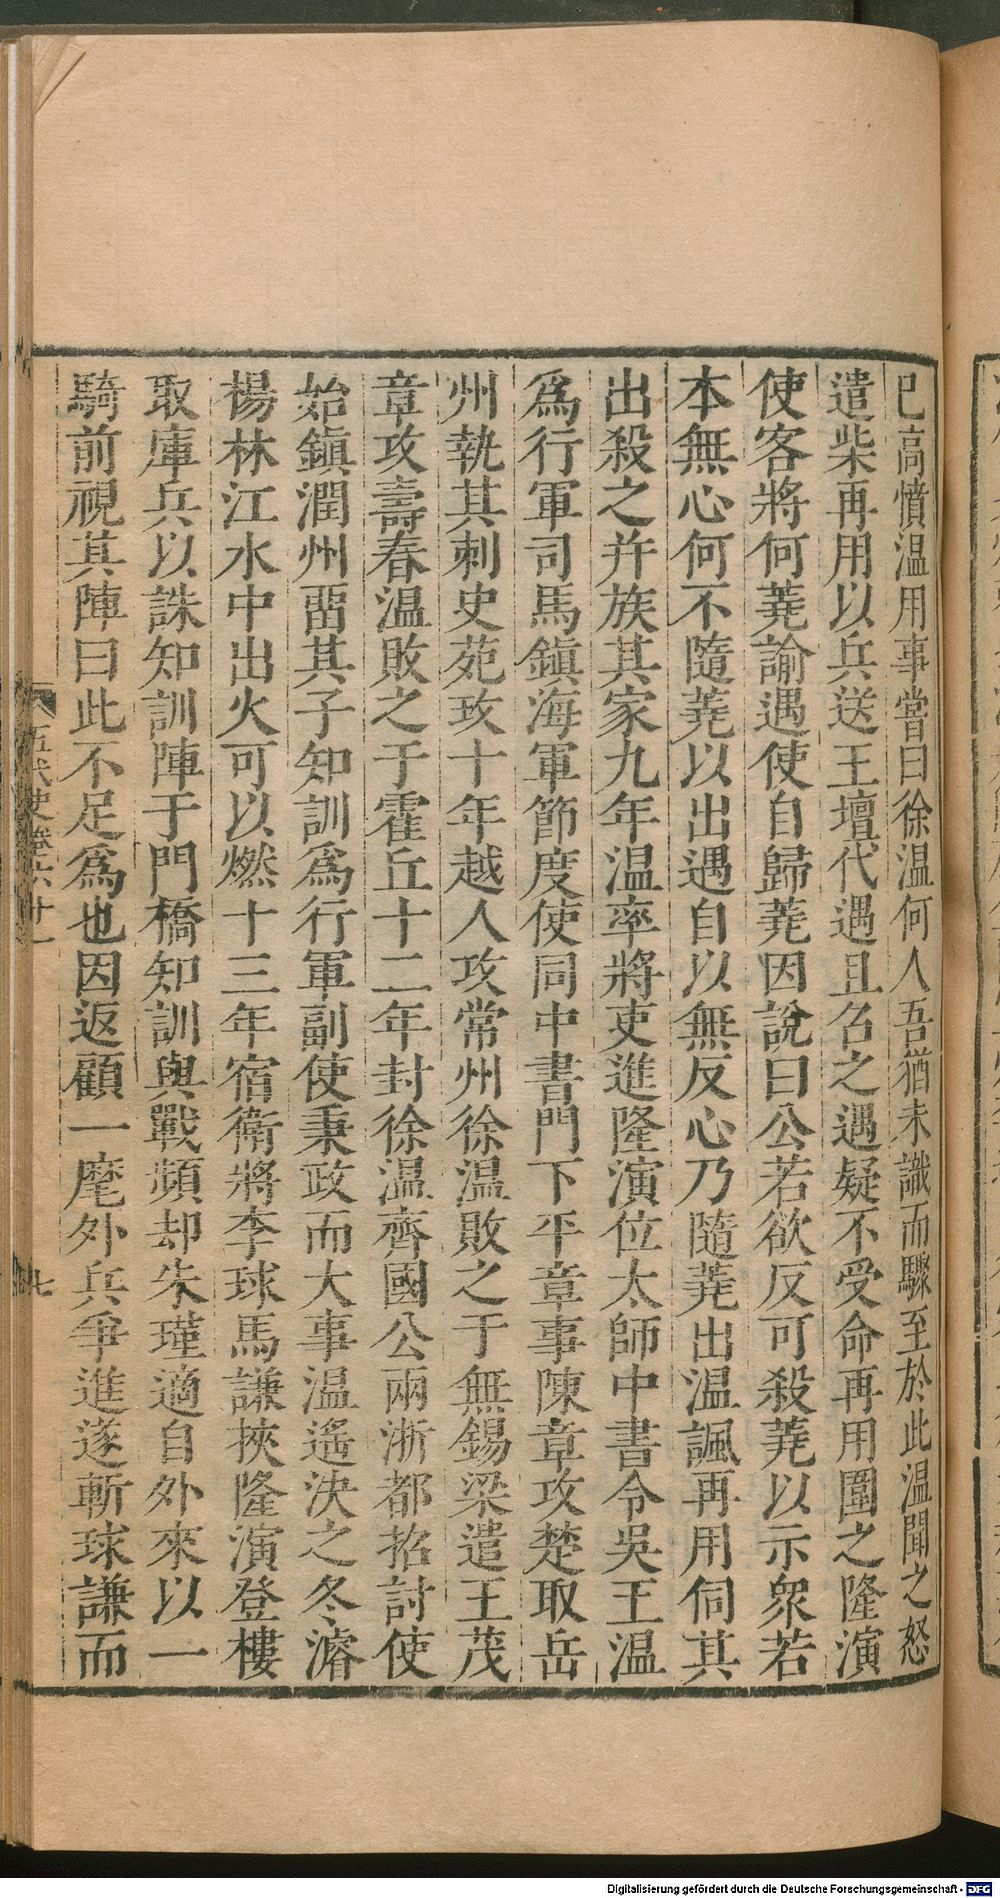 已高憤温用事嘗曰徐温何人吾猶未識而驟至於此温聞之怒
遣柴再用以兵送王壇代遇且召之遇疑不受命再用圍之隆演
使客將何蕘諭遇使自歸蕘因說曰公若欲反可殺蕘以示衆若
本無心何不隨蕘以出遇自以無反心乃隨蕘出温諷再用伺其
出殺之并族其家九年温率將吏進隆演位太師中書令吳王温
爲行軍司馬鎭海軍節度使同中書門下平章事陳章攻楚取岳
州執其刺史苑玫十年越人攻常州徐温敗之于無錫梁遣王茂
章攻壽春温敗之于霍丘十二年封徐温齊國公兩浙都招討使
始鎭潤州畱其子知訓爲行軍副使秉政而大事温遙決之冬濬
楊林江水中出火可以燃十三年宿衛將李球馬謙挾隆演登樓
取庫兵以誅知訓陣于門橋知訓與戰頻却朱瑾適自外來以一
騎前視其陣曰此不足爲也因返顧一麾外兵爭進遂斬球謙而
五代史卷六十一
七
Digitalisierung gefördert durch die Deutsche Forschungsgemeinschaft - DFG